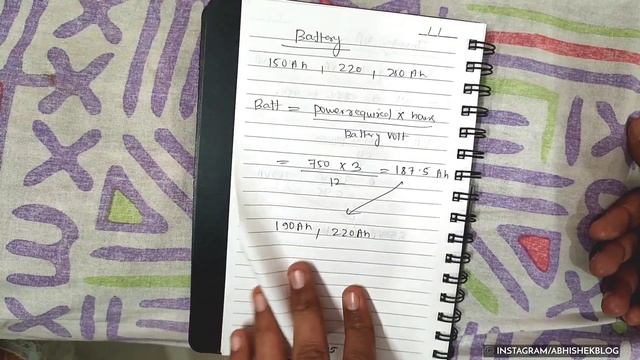 Battery
150Ah, 220, 250 Ah
Batt = power required x hours
Battery Volt
= 750 x 3 = 187.5 Ah
12
190Ah, 220Ah
INSTAGRAM/ABHISHEKBLOG